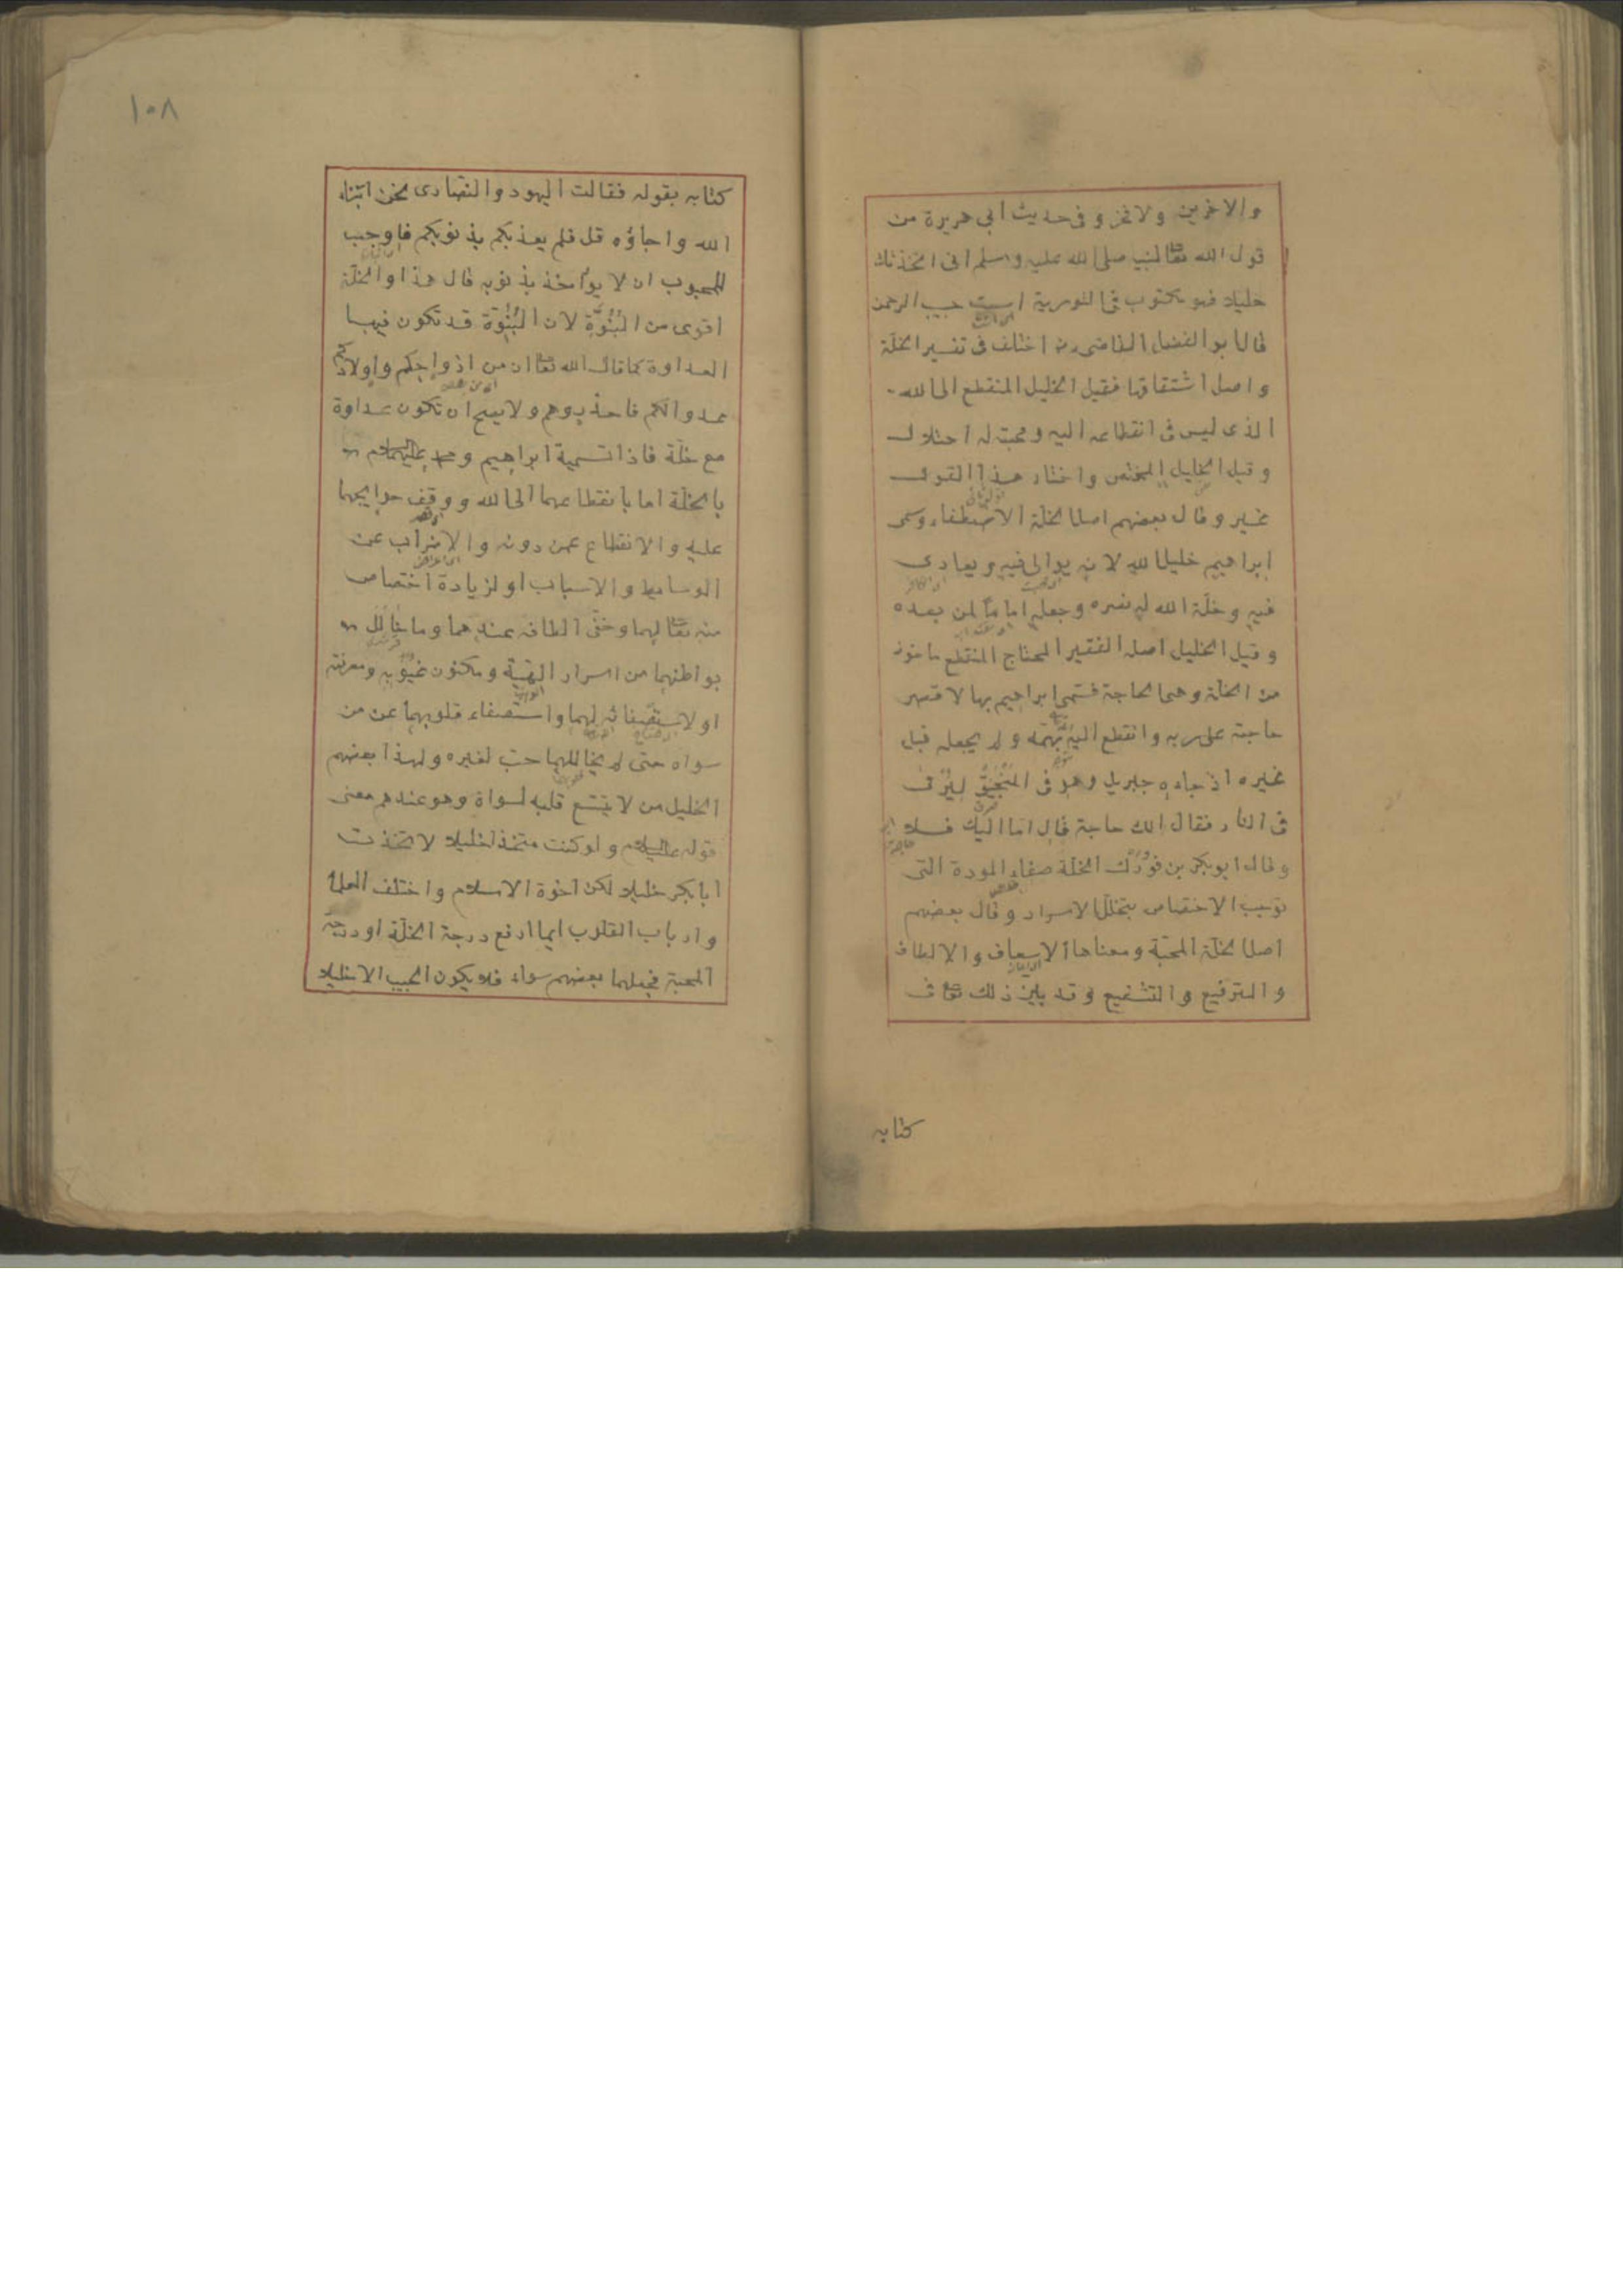 والاخرين ولا فخر وفى حديث ابى هريرة من
قول الله تعا لنبيه صلى الله عليه وسلم انى اتخذتك
خليلا فهو مكتوب فى التورية حبيب الرحمن
قال ابو الفضل القاضى اختلف فى تفسير الخلة
واصل اشتقاقها فقيل الخليل المنقطع الى الله
الذى ليس فى انقطاعه اليه ومحبته له اختلال
وقيل الخليل المختص واختار هذا القول
غير وقال بعضهم اصل الخلة الاصطفاء وسمى
ابراهيم خليل الله لانه يوالى فيه ويعادى
فيه وخلة الله له نصره وجعله اماما لمن بعده
وقيل الخليل اصله الفقير المحتاج المنقطع ماخوذ
من الخلة وهى الحاجة فسمى ابراهيم بها لا قصر
حاجته على ربه وانقطع اليه بهمه ولم يجعله قبل
غيره اذ جاءه جبريل وهو فى المنجنيق ليرمى
فى النار فقال الك حاجة قال اما اليك فلا
وقال ابو بكر بن فورك الخلة صفاء المودة التى
توجب الاختصاص بتخلل الاسرار وقال بعضهم
اصل الخلة المحبة ومعناها الاسعاف والالطاف
والترفيع والتشفيع وقد بين ذلك تعا فى
كتابه
١٠٨
كتابه بقوله فقالت اليهود والنصارى نحن ابناء
الله واحباؤه قل فلم يعذبكم بذنوبكم فاوجب
للمحبوب ان لا يؤاخذ بذنوبه قال هذا والخلة
اقوى من البُنُوَّة لان البُنُوّة قد تكون فيها
العداوة كما قال الله تعا ان من ازواجكم واولادكم
عدوا لكم فاحذروهم ولا يصح ان تكون عداوة
مع خلة فاذا تسمية ابراهيم ومحمد عليهما السلام
بالخلة اما بانقطاعهما الى الله ووقف حوايجهما
عليه والانقطاع عمن دونه والاضراب عن
الوسايط والاسباب او لزيادة اختصاص
منه تعا لهما وخفى الطافه عندهما وما خالل
بواطنهما من اسرار الهية ومكنون غيوبه ومعرفته
او لاستصفائه لهما واستصفاء قلوبهما عن من
سواه حتى لم يخاللهما حب لغيره ولهذا بعضهم
الخليل من لا يتسع قلبه لسواه وهو عندهم معنى
قوله عليه السلام ولو كنت متخذا خليلا لاتخذت
ابا بكر خليلا لكن اخوة الاسلام واختلف العلما
وارباب القلوب ايما ارفع درجة الخلة او درجة
المحبة فجعلهما بعضهم سواء فلا يكون الحبيب الا خليلا